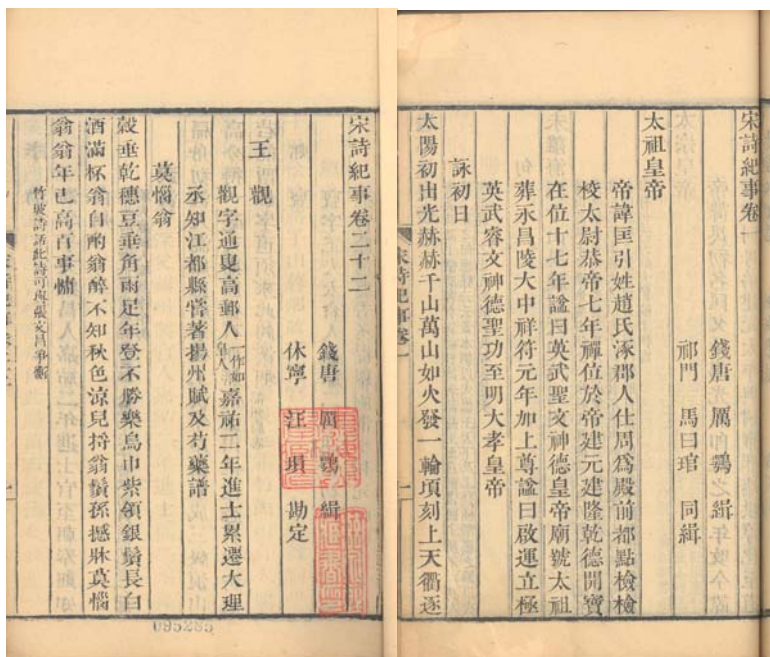 宋詩紀事卷一
錢唐 厲鶚 緝
祁門 馬曰琯 同緝
太祖皇帝
帝諱匡引姓趙氏涿郡人仕周爲殿前都點檢檢
校太尉恭帝七年禪位於帝建元建隆乾德開寶
在位十七年諡曰英武聖文神德皇帝廟號太祖
葬永昌陵大中祥符元年加上尊諡曰啟運立極
英武睿文神德聖功至明大孝皇帝
詠初日
太陽初出光赫赫千山萬山如火發一輪頃刻上天衢逐
宋詩紀事卷一
一
宋詩紀事卷二十二
錢唐 厲鶚 緝
休寧 汪 勘定
王觀
觀字通叟高郵人一作如皐人嘉祐二年進士累遷大理
丞知江都縣嘗著揚州賦及芍藥譜
莫惱翁
穀垂乾穗豆垂角雨足年登不勝樂烏巾紫領銀鬚長白
酒滿杯翁自酌翁醉不知秋色涼兒捋翁鬚孫撼牀莫惱
翁翁年已高百事慵
竹坡詩話此詩可與張文昌爭衡
一
095285